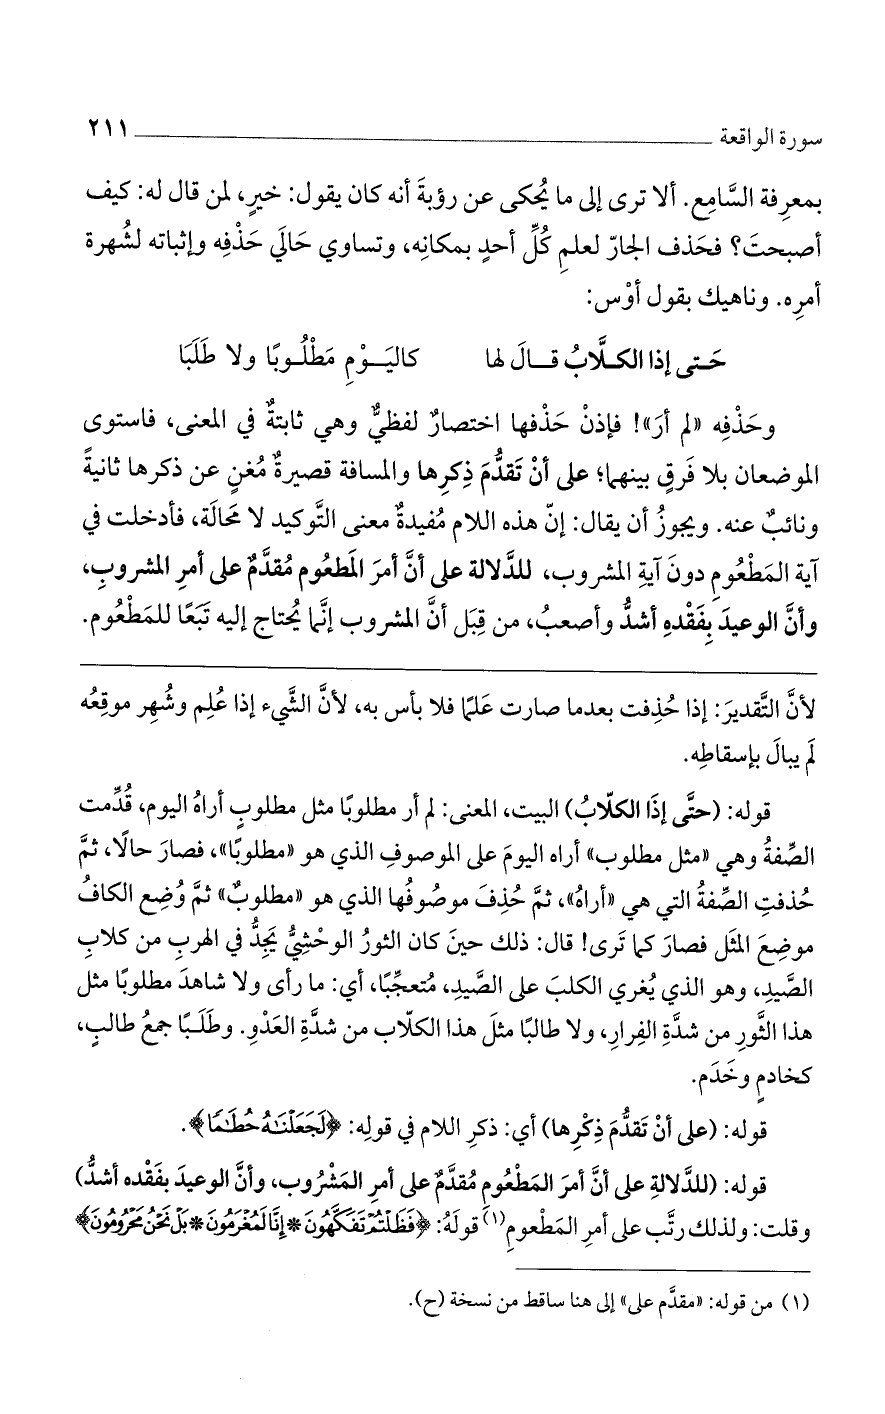 سورة الواقعة ٢١١
بمعرِفة السَّامِع. ألا ترى إلى ما يُحكى عن رؤبةَ أنه كان يقول: خيرٍ، لمن قال له: كيف
أصبحتَ؟ فحَذف الجارّ لعلمِ كُلِّ أحدٍ بمكانِه، وتساوي حَالَي حَذْفِه وإثباته لشُهرة
أمرِه. وناهيك بقول أوْس:
حَـتى إذا الكـلَّابُ قـــالَ لها كاليَـــوْمِ مَطْلُـوبًا ولا طَلَبَا
وحَذْفِه «لم أرَ»! فإذنْ حَذْفها اختصارٌ لفظيٌّ وهي ثابتةٌ في المعنى، فاستوى
الموضعان بلا فَرقٍ بينهما؛ على أنْ تَقدُّمَ ذِكرِها والمسافة قصيرةٌ مُغنٍ عن ذكرها ثانيةً
ونائبٌ عنه. ويجوزُ أن يقال: إنّ هذه اللام مُفيدةٌ معنى التَّوكيد لا مَحالَة، فأدخلت في
آية المَطْعُومِ دونَ آيةِ المشروب، للدَّلالة على أنَّ أمرَ المَطعُوم مُقدَّمٌ على أمرِ المشروبِ،
وأنَّ الوعيدَ بِفَقْدهِ أشدُّ وأصعبُ، من قِبَل أنَّ المشروب إنَّما يُحتاج إليه تَبَعًا للمَطْعُوم.
لأنَّ التَّقديرَ: إذا حُذِفت بعدما صارت عَلَمًا فلا بأس به، لأنَّ الشَّيء إذا عُلِم وشُهِر موقِعُه
لَم يبالَ بإسقاطِه.
قوله: (حتَّى إذَا الكلّابُ) البيت، المعنى: لم أر مطلوبًا مثل مطلوبٍ أراهُ اليوم، قُدِّمت
الصِّفةُ وهي «مثل مطلوب» أراه اليومَ على الموصوفِ الذي هو «مطلوبًا»، فصارَ حالًا، ثمَّ
حُذفتِ الصِّفةُ التي هي «أراهُ»، ثمَّ حُذِفَ موصُوفُها الذي هو «مطلوبٌ» ثمَّ وُضِع الكافُ
موضِعَ المثَل فصارَ كما تَرى! قال: ذلك حينَ كان الثورُ الوحْشِيُّ يَجِدُّ في الهربِ من كلابِ
الصَّيدِ، وهو الذي يُغري الكلبَ على الصَّيدِ، مُتعجِّبًا، أي: ما رأى ولا شاهدَ مطلوبًا مثل
هذا الثَّورِ من شدَّةِ الفِرارِ، ولا طالبًا مثلَ هذا الكلّاب من شدَّةِ العَدْوِ. وطَلَبًا جمعُ طالبٍ،
كخادمٍ وخَدَم.
قوله: (على أنْ تَقدُّمَ ذِكْرِها) أي: ذكرِ اللام في قولِه: ﴿لَجَعَلْنَٰهُ حُطَٰمًا﴾.
قوله: (للدَّلالةِ على أنَّ أمرَ المَطْعُومِ مُقدَّمٌ على أمرِ المَشْرُوب، وأنَّ الوعيدَ بفَقْده أشدُّ)
وقلت: ولذلك رتَّب على أمرِ المَطْعومِ(١) قولَهُ: ﴿فَظَلْتُمْ تَفَكَّهُونَ * إِنَّا لَمُغْرَمُونَ * بَلْ نَحْنُ مَحْرُومُونَ﴾
(١) من قوله: «مقدَّم على» إلى هنا ساقط من نسخة (ح).